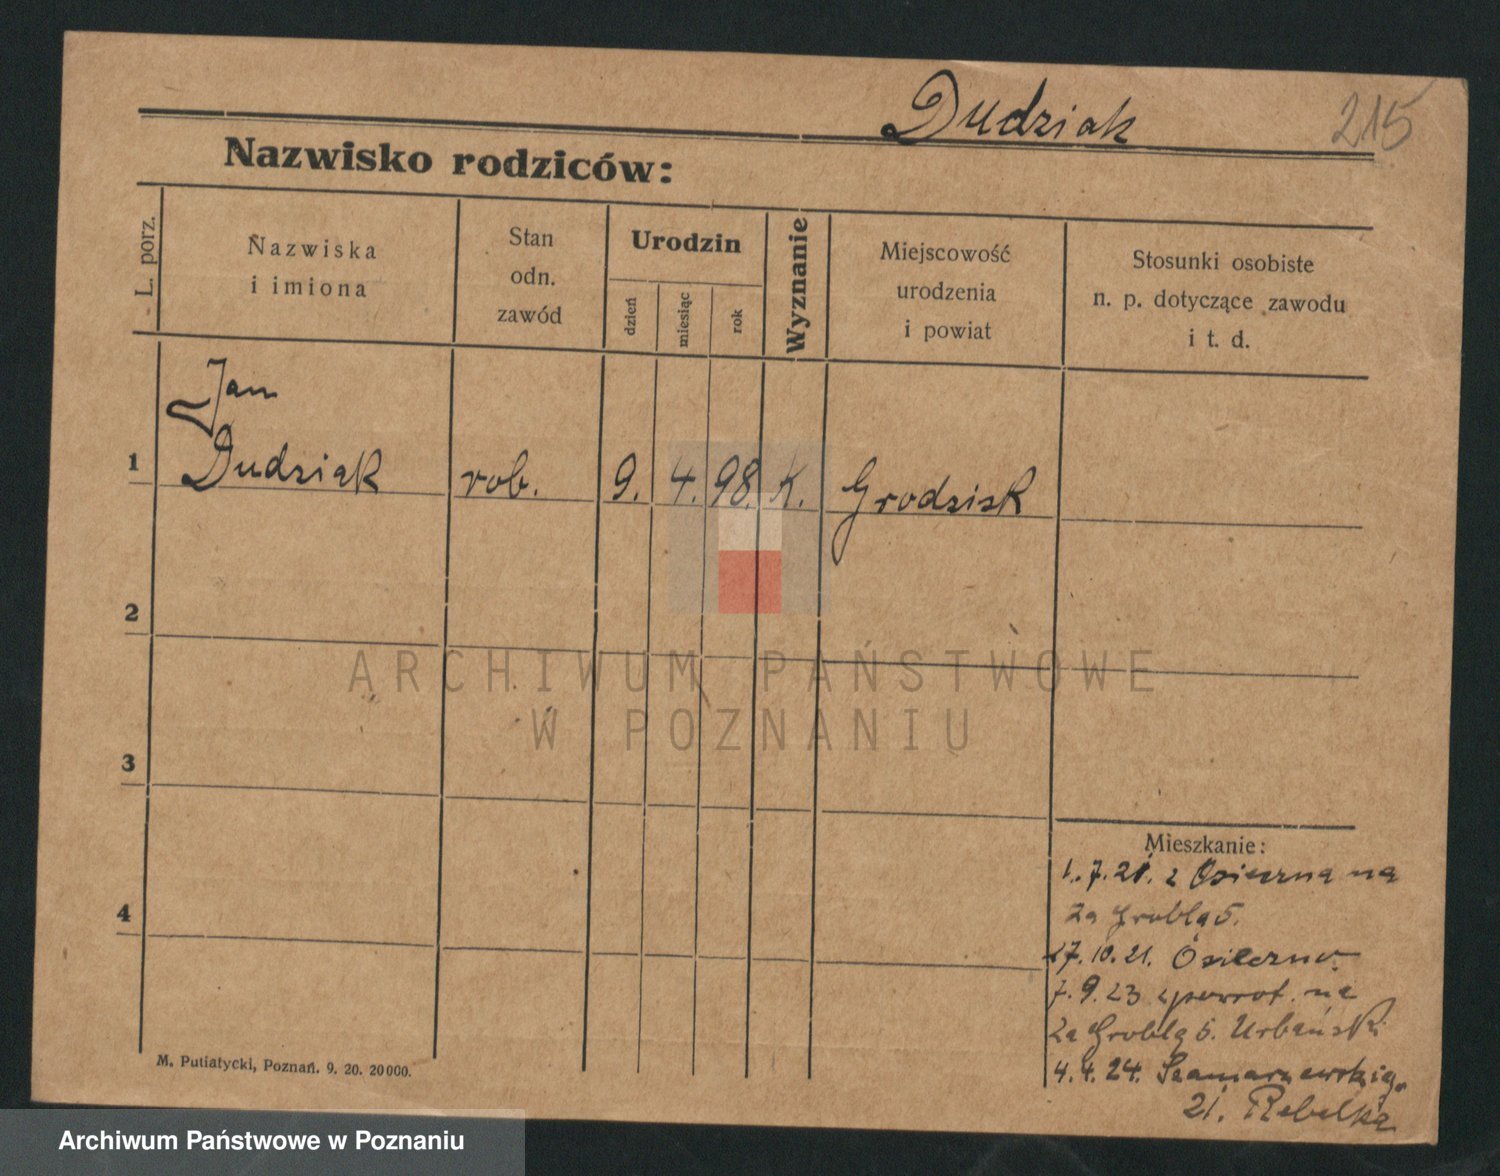 Dudziak
215
Nazwisko rodziców:
L. porz.
Nazwiska
i imiona
Stan
odn.
zawód
Urodzin
dzień
miesiąc
rok
Wyznanie
Miejscowość
urodzenia
i powiat
Stosunki osobiste
n. p. dotyczące zawodu
i t. d.
Jan
1 Dudziak rob. 9. 4. 98. K. Grodzisk
2
3
4
ARCHIWUM PAŃSTWOWE
W POZNANIU
Mieszkanie:
1.7.21. z Osieczna na
Za Groblą 5.
17.10.21. Osieczno.
7.9.23 zpowrot. na
Za Groblą 5. Urbański
4.4.24.
21. Rebelka
M. Putiatycki, Poznań. 9. 20. 20000.
Archiwum Państwowe w Poznaniu